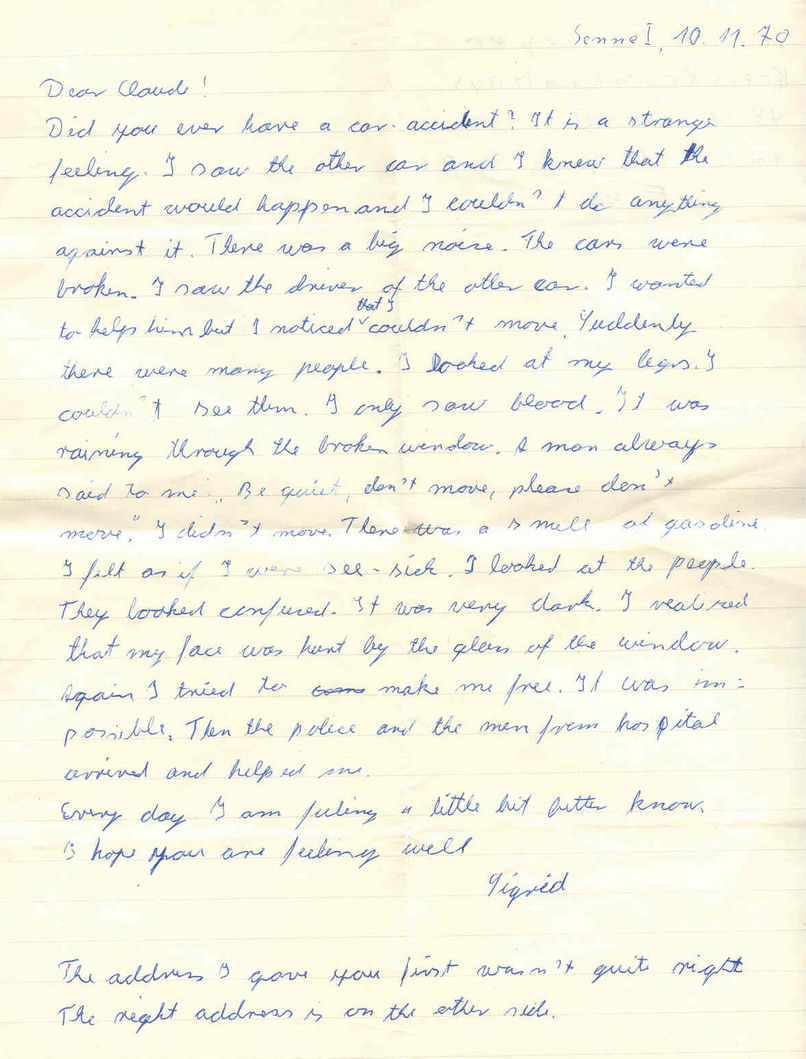 Senne I, 10. 11. 70
Dear Claude!
Did you ever have a car accident? It is a strange
feeling. I saw the other car and I knew that the
accident would happen and I couldn't do anything
against it. There was a big noise. The cars were
broken. I saw the driver of the other car. I wanted
to help him but I noticed that I couldn't move. Suddenly
there were many people. I looked at my legs. I
couldn't see them. I only saw blood. It was
raining through the broken window. A man always
said to me: „Be quiet, don't move, please don't
move." I didn't move. There was a smell of gasoline
I felt as if I were see-sick. I looked at the people.
They looked confused. It was very dark. I realized
that my face was hurt by the glass of the window.
Again I tried to make me free. It was im-
possible. Then the police and the men from hospital
arrived and helped me.
Every day I am feeling a little bit better know.
I hope you are feeling well
Sigrid
The address I gave you first wasn't quite right
The right address is on the other side.